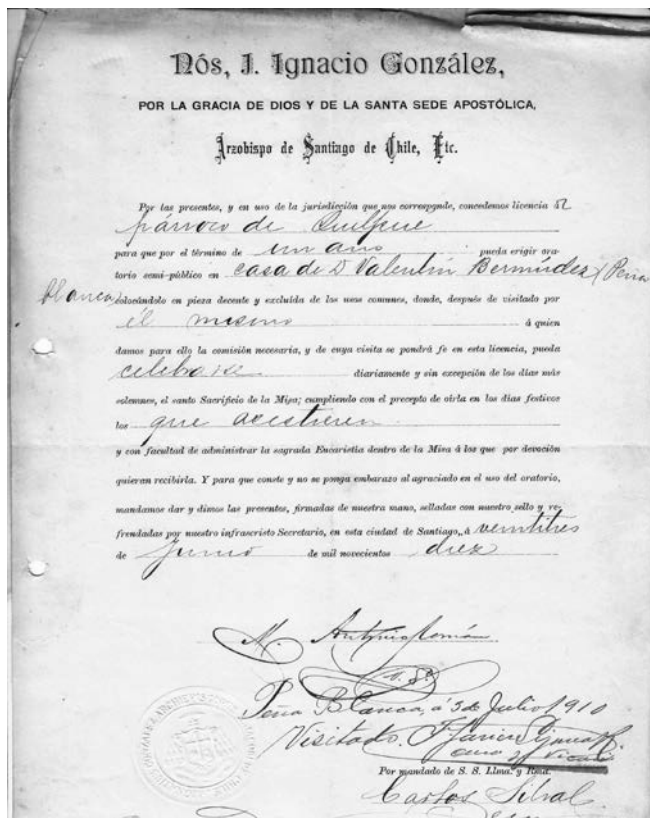 Nós, J. Ignacio González,
POR LA GRACIA DE DIOS Y DE LA SANTA SEDE APOSTÓLICA,
Arzobispo de Santiago de Chile, Etc.
Por las presentes, y en uso de la jurisdicción que nos corresponde, concedemos licencia al
párroco de Quilpue
para que por el término de un año pueda erigir ora-
torio semi-público en casa de D Valentin Bermudez (Peña
blanca) colocándolo en pieza decente y excluída de los usos comunes, donde, después de visitado por
el mismo á quien
damos para ello la comisión necesaria, y de cuya visita se pondrá fe en esta licencia, pueda
celebrarse diariamente y sin excepción de los días más
solemnes, el santo Sacrificio de la Misa; cumpliendo con el precepto de oírla en los días festivos
los que asistieren
y con facultad de administrar la sagrada Eucaristía dentro de la Misa á los que por devoción
quieran recibirla. Y para que conste y no se ponga embarazo al agraciado en el uso del oratorio,
mandamos dar y dimos las presentes, firmadas de nuestra mano, selladas con nuestro sello y re-
frendadas por nuestro infrascristo Secretario, en esta ciudad de Santiago, á veintitres
de Junio de mil novecientos diez
M. Antonio Román
V. G.
Peña Blanca, á 3 de Julio 1910
Visitado. Javier
cura y Vicario
Por mandado de S. S. Iltma. y Rma.
Carlos Silva